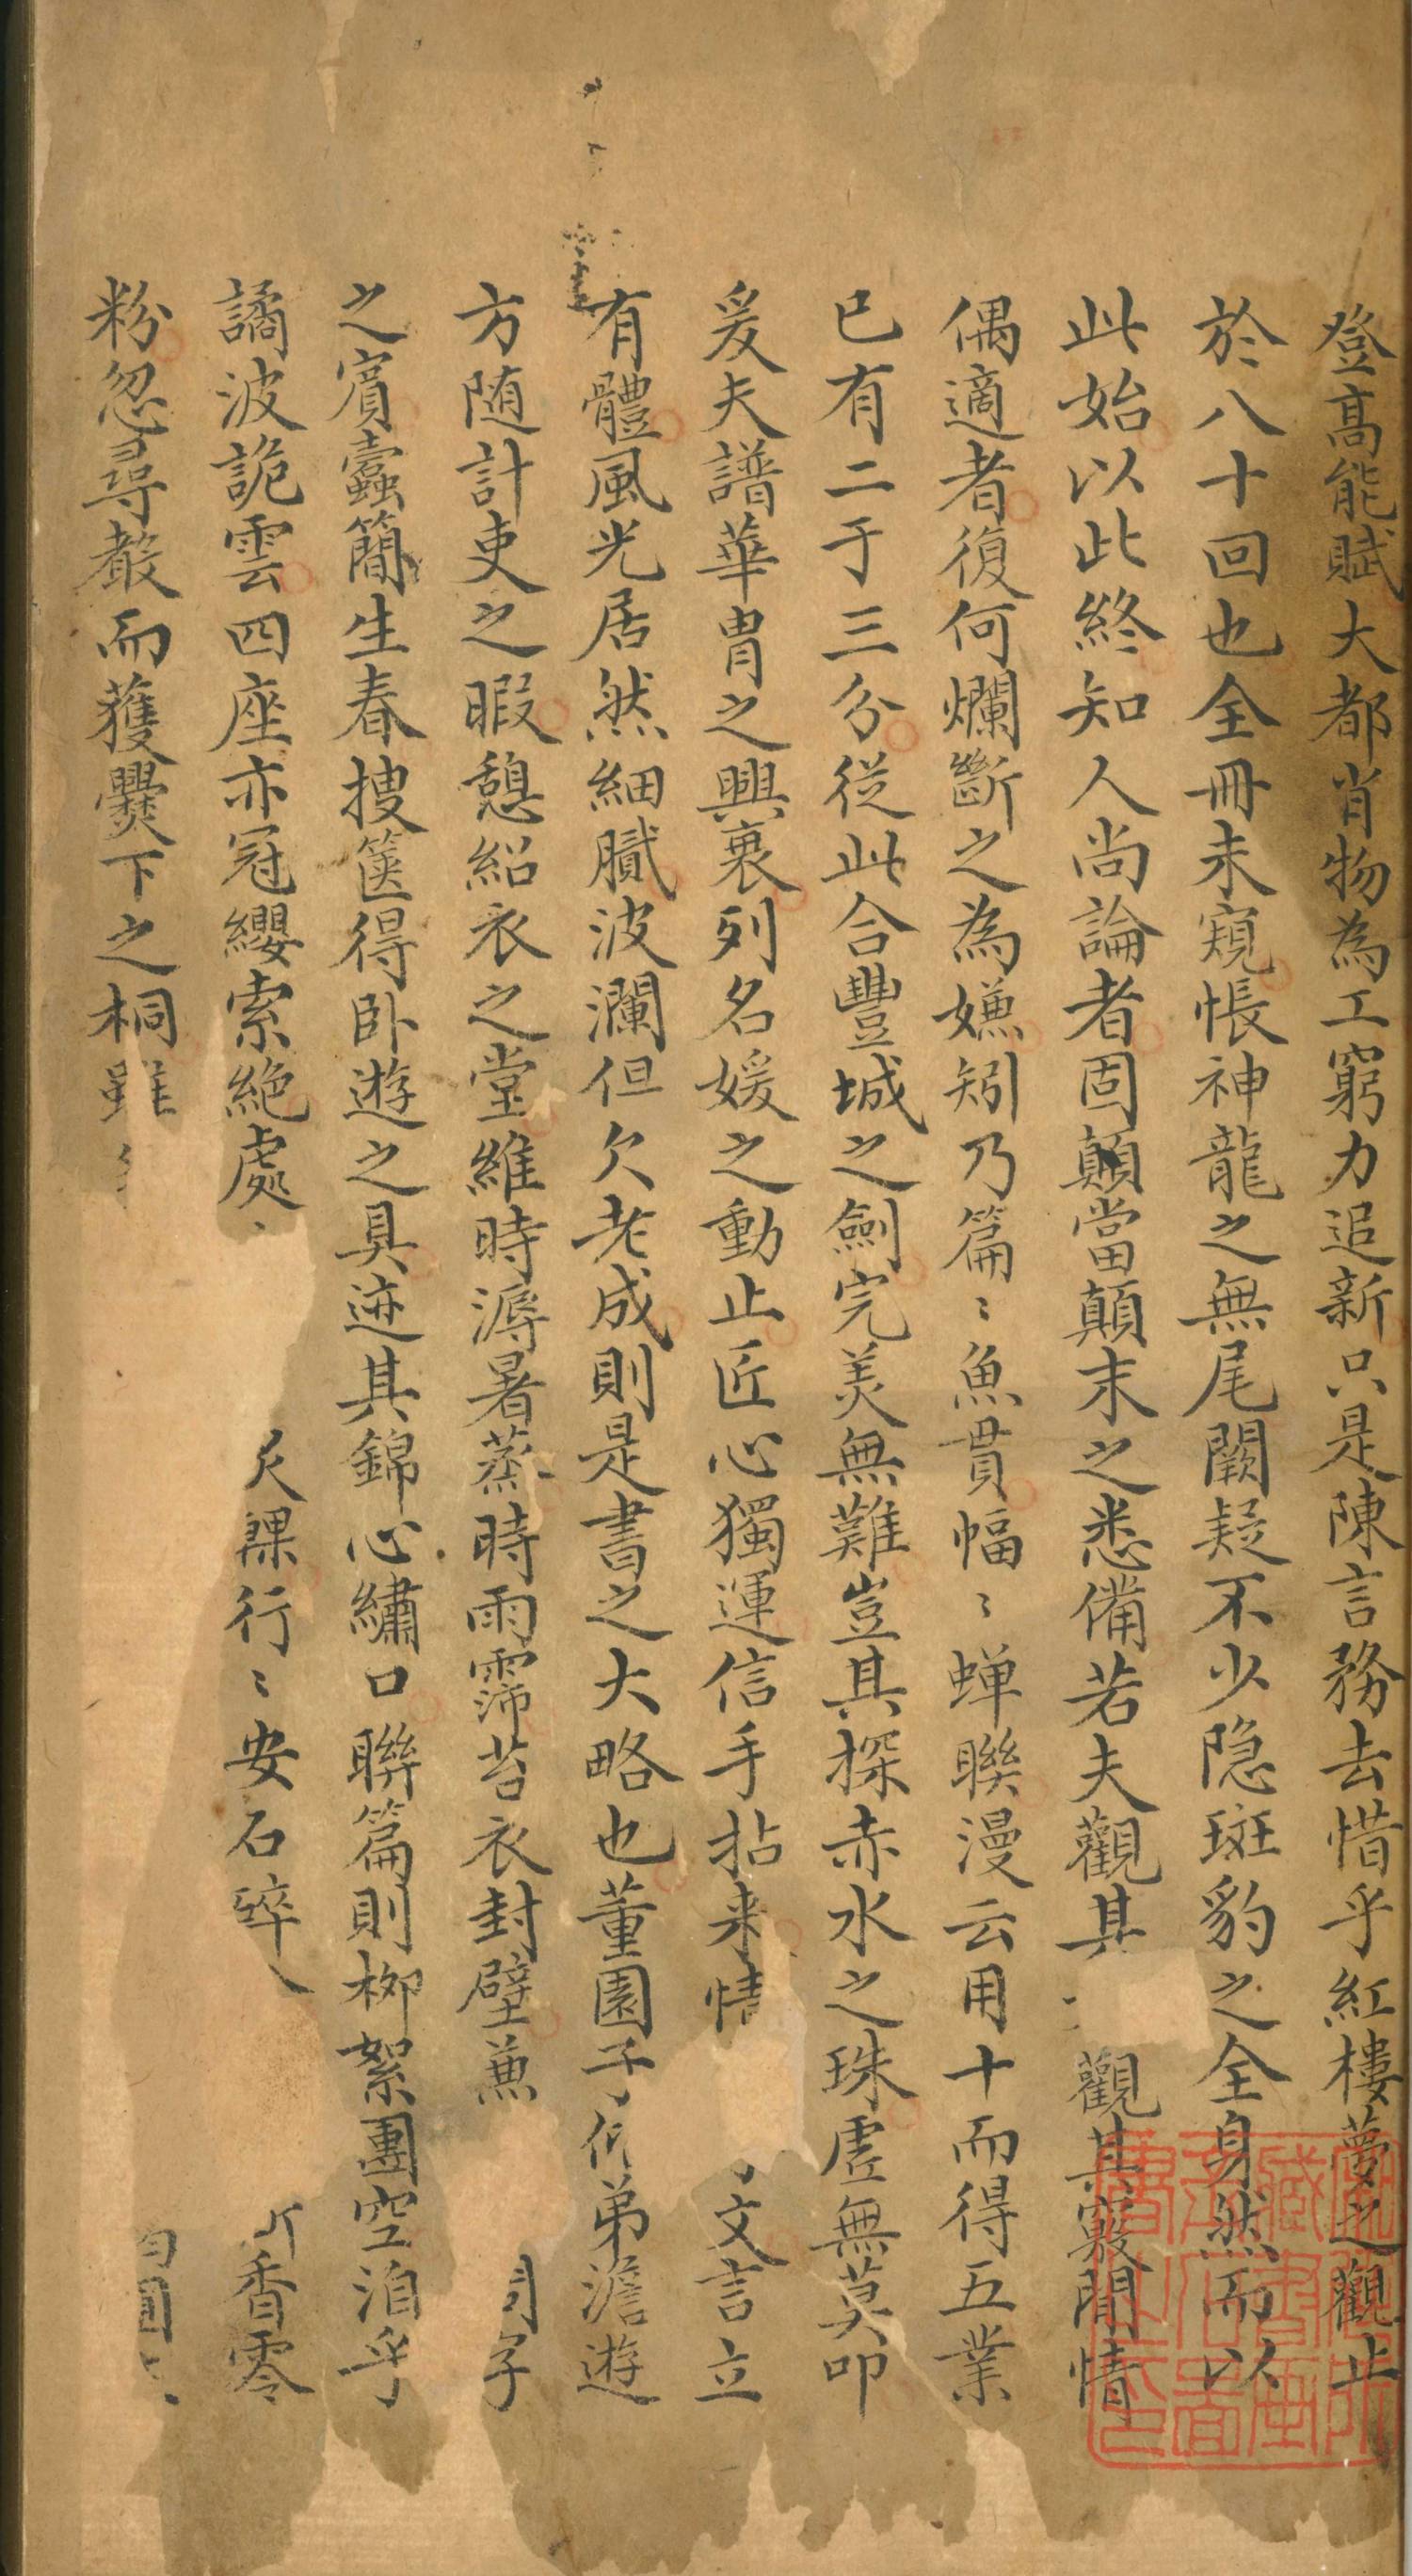 登高能賦大都肖物為工窮力追新只是陳言務去惜乎紅樓夢之觀止
於八十回也全冊未窺悵神龍之無尾闕疑不少隐斑豹之全身然而以
此始以此終知人尚論者固顛當顛末之悉備若夫觀其觀其竅閒情
偶適者復何爛斷之為嫌矧乃篇〻魚貫幅〻蝉聯漫云用十而得五業
已有二于三分從此合豐城之劍完美無難豈其探赤水之珠虛無莫叩
爰夫譜華冑之興衰列名媛之動止匠心獨運信手拈来情文言立
有體風光居然細膩波瀾但欠老成則是書之大略也董園子偕弟澹遊
方随計吏之暇憩紹衣之堂維時溽暑蒸時雨霈苔衣封壁兼
之賓蠹簡生春搜篋得卧遊之具迹其錦心繡口聯篇則栁絮團空洎乎
譎波詭雲四座亦冠纓索絶處行〻安石碎香零
粉忽尋聲而獲爨下之桐雖園